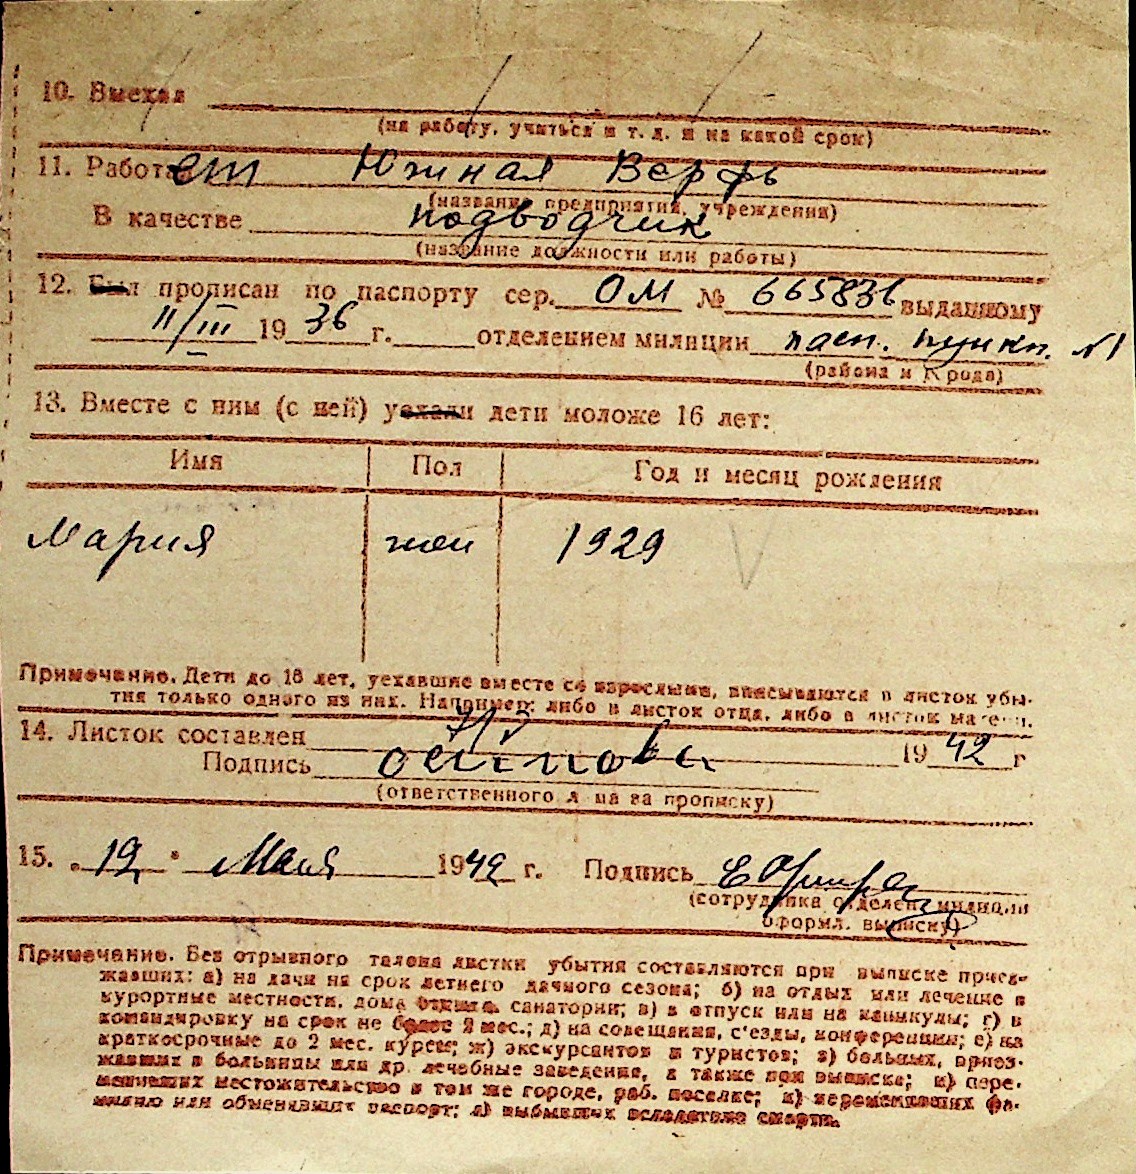 10. Выехал
(на работу, учиться и т. д. и на какой срок)
11. Работает Южная Верфь
(название предприятия, учреждения)
В качестве подводчик
(название должности или работы)
12. Был прописан по паспорту сер. ОМ № 665836 выданному
11/III 1936 г. отделением милиции пасп. пункт. №1
(района и города)
13. Вместе с ним (с ней) уехали дети моложе 16 лет:
Имя Пол Год и месяц рождения
Мария жен 1929
Примечание. Дети до 16 лет, уехавшие вместе со взрослыми, вписываются в листок убы-
тия только одного из них. Например: либо в листок отца, либо в листок матери.
14. Листок составлен 1942 г
Подпись
(ответственного лица за прописку)
15. „12" Мая 1942 г. Подпись
(сотрудника отделен. милиции
оформл. выписку)
Примечание. Без отрывного талона листки убытия составляются при выписке приез-
жавших: а) на дачи на срок летнего дачного сезона; б) на отдых или лечение в
курортные местности, дома отдыха, санатории; в) в отпуск или на каникулы; г) в
командировку на срок не более 2 мес.; д) на совещания, с'езды, конференции; е) на
краткосрочные до 2 мес. курсы; ж) экскурсантов и туристов; з) больных, приез-
жавших в больницы или др. лечебные заведения, а также при выписке; и) пере-
менивших местожительство в том же городе, раб. поселке; к) переменивших фа-
милию или обменявших паспорт; л) выбывших вследствие смерти.